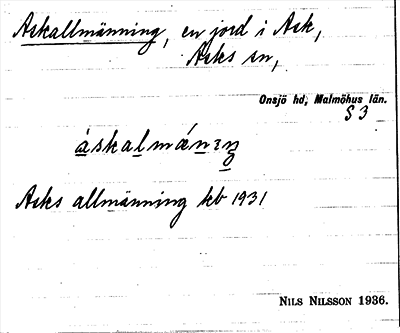 Askallmänning, en jord i Ask,
Asks sn,
Onsjö hd, Malmöhus län.
S 3
Asks allmänning kb 1931
NILS NILSSON 1936.